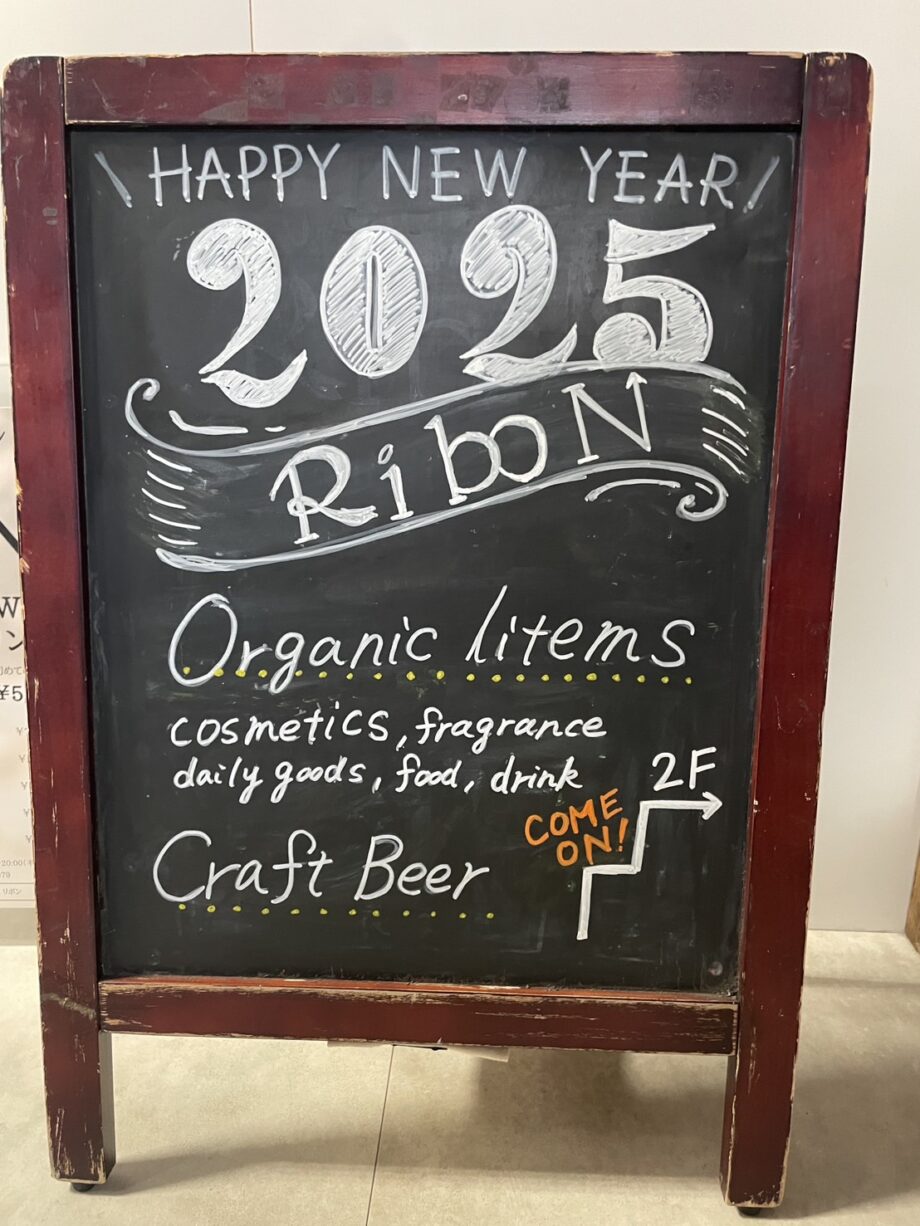 \ HAPPY NEW YEAR /
2025
RiboN
Organic Iitems
cosmetics, fragrance
daily goods, food, drink
2F
COME
ON!
Craft Beer
W
ン
初めて
¥5
20:00
リボン